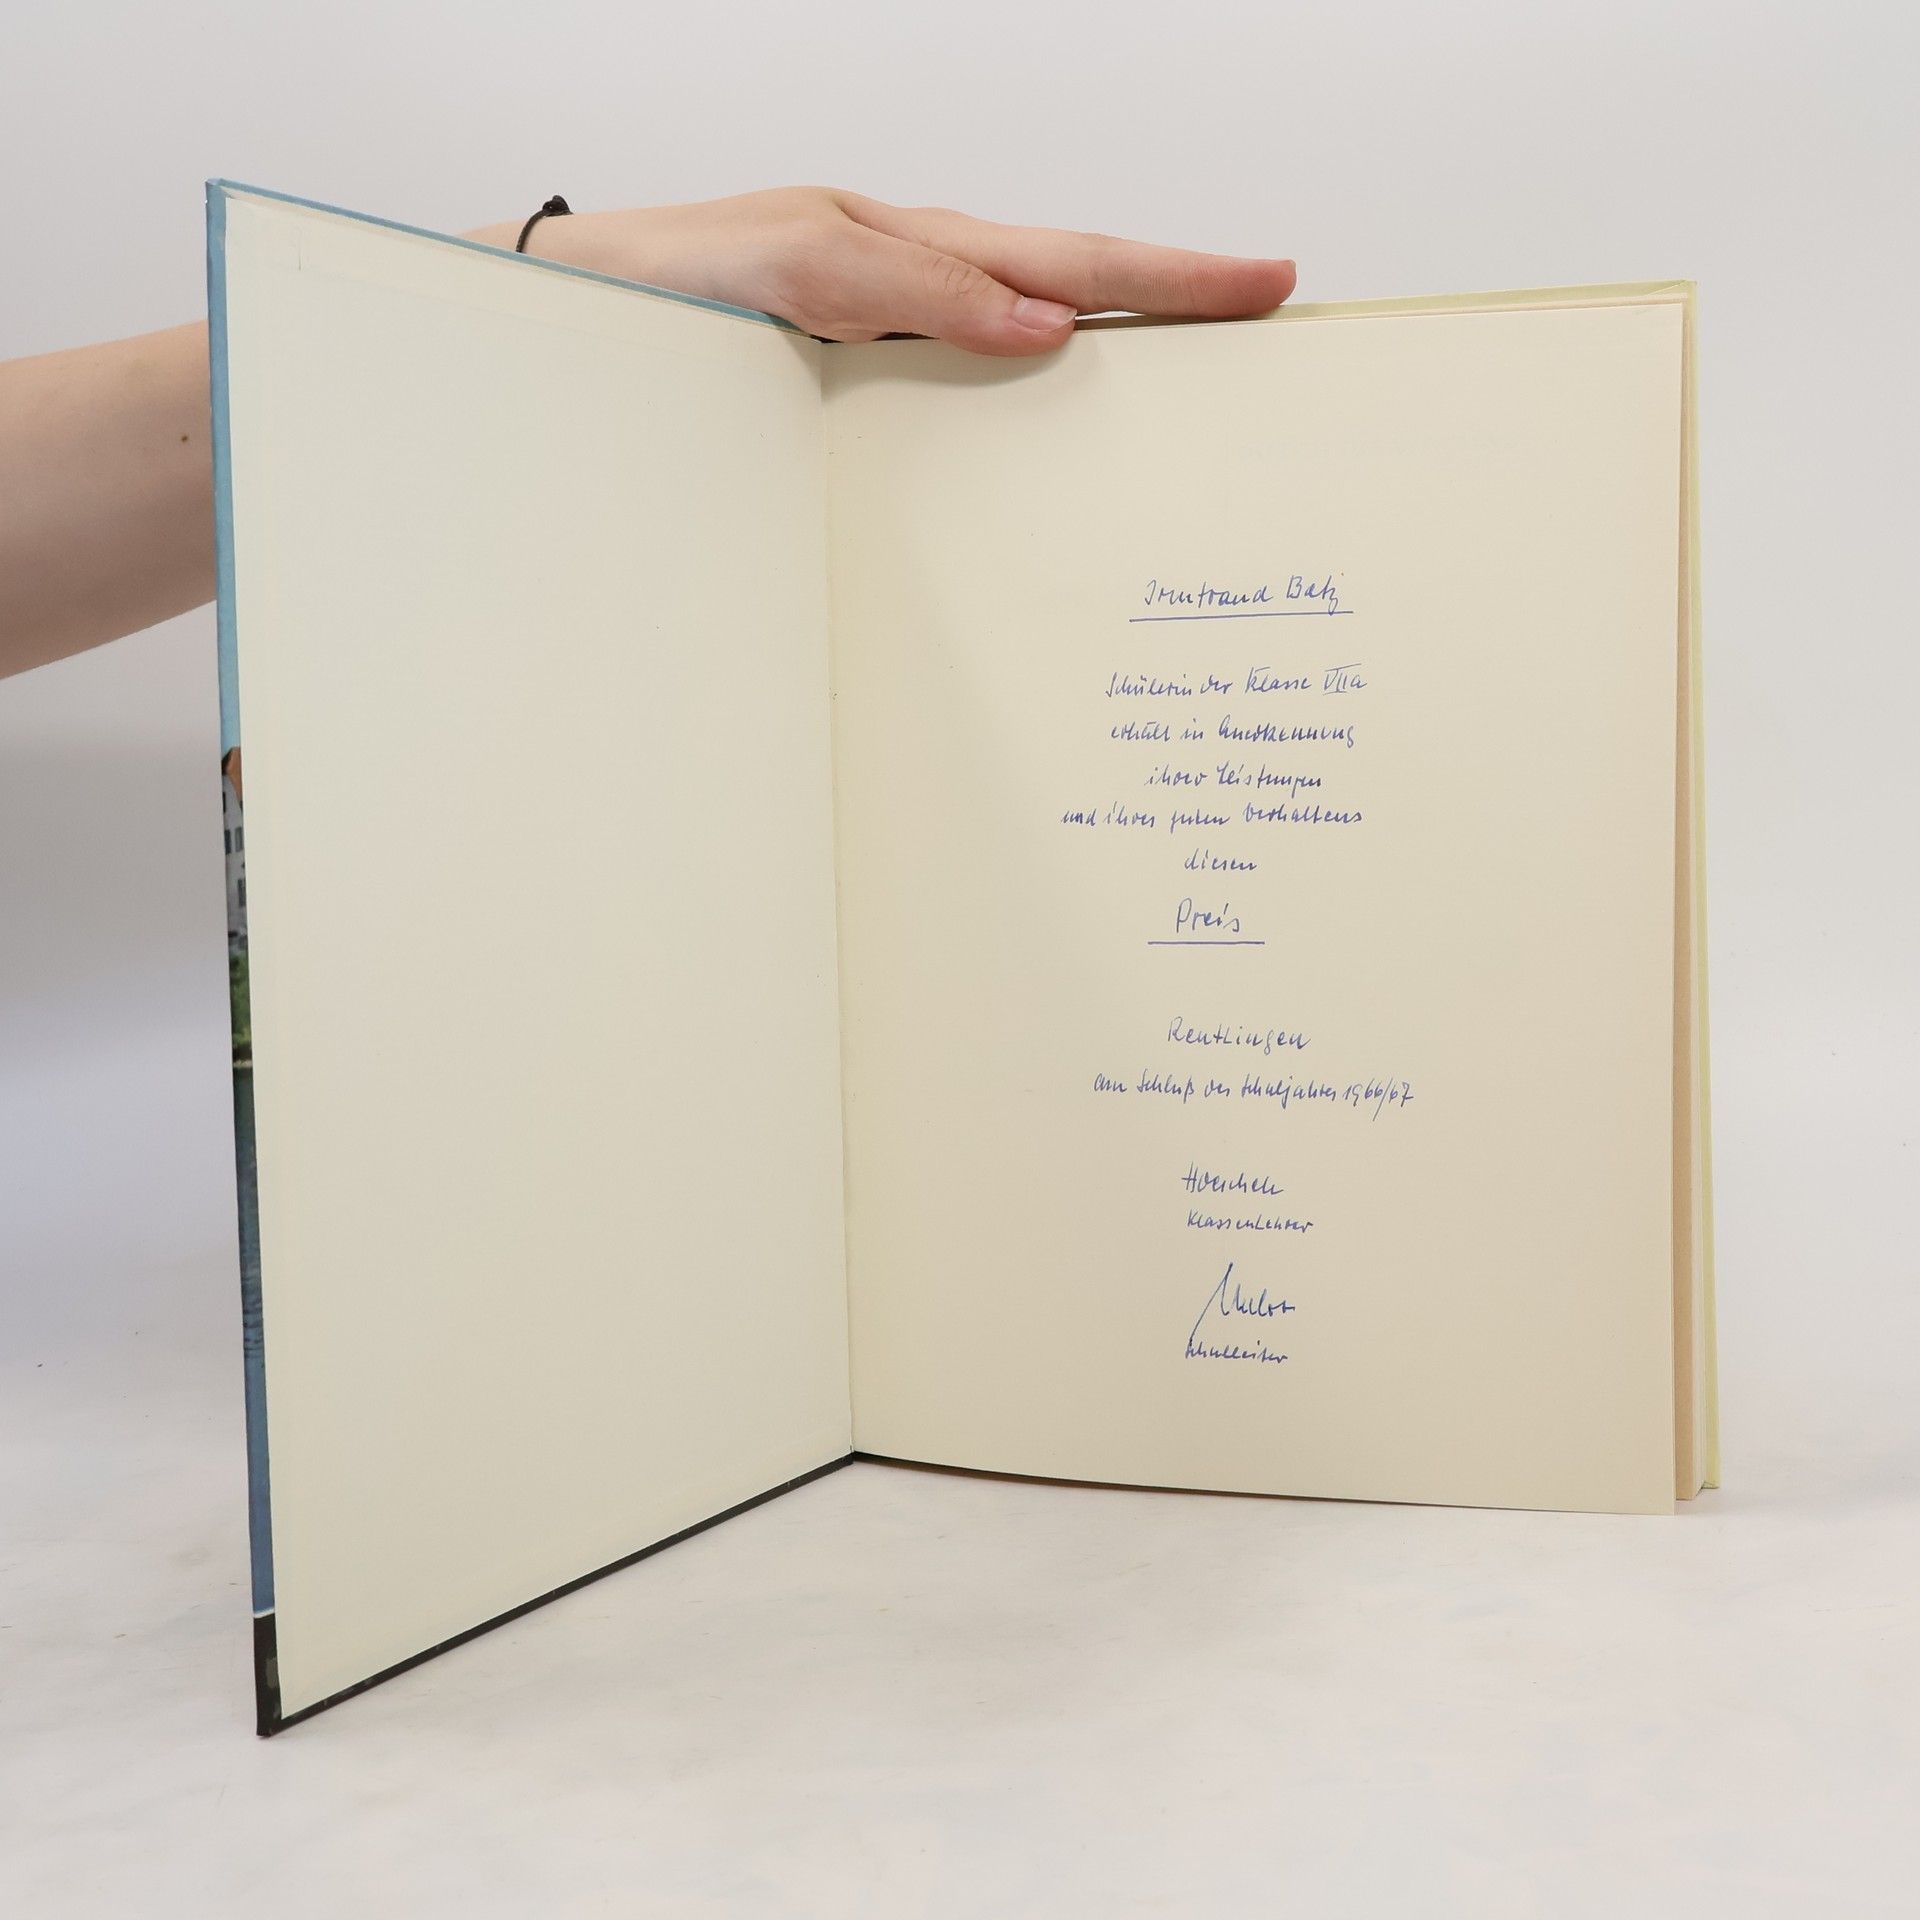 Irmtraud Batz
Schülerin der Klasse VIIa
erhält in Anerkennung
ihrer Leistungen
und ihres guten Verhaltens
diesen
Preis
Reutlingen
am Schluß des Schuljahres 1966/67
Klassenlehrer
Schulleiter